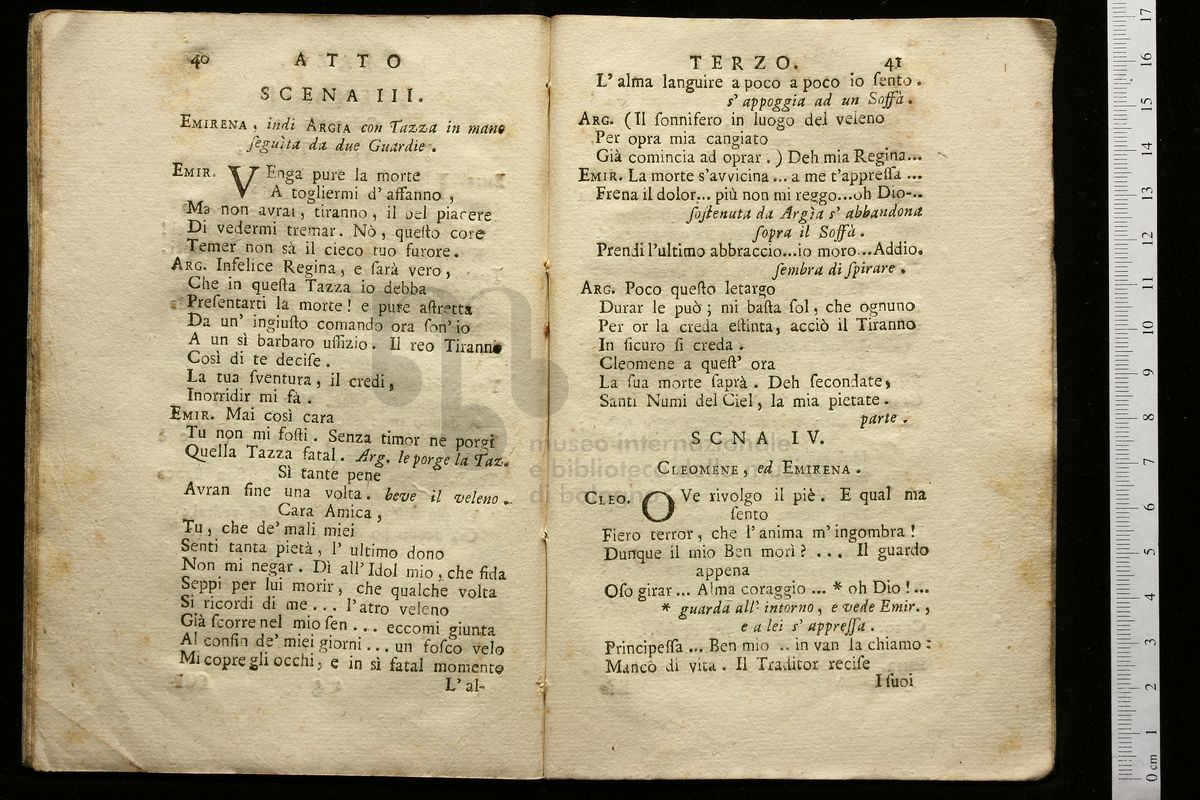 40 ATTO
SCENA III.
EMIRENA, indi ARGIA con Tazza in mano
ſeguìta da due Guardie.
EMIR. VEnga pure la morte
A togliermi d'affanno,
Ma non avrai, tiranno, il bel piacere
Di vedermi tremar. Nò, queſto core
Temer non sà il cieco tuo furore.
ARG. Infelice Regina, e ſarà vero,
Che in queſta Tazza io debba
Preſentarti la morte! e pure aſtretta
Da un' ingiuſto comando ora ſon' io
A un sì barbaro uffizio. Il reo Tiranno
Così di te deciſe.
La tua ſventura, il credi,
Inorridir mi fà.
EMIR. Mai così cara
Tu non mi foſti. Senza timor ne porgi
Quella Tazza fatal. Arg. le porge la Taz.
Sì tante pene
Avran fine una volta. beve il veleno.
Cara Amica,
Tu, che de' mali miei
Senti tanta pietà, l' ultimo dono
Non mi negar. Dì all' Idol mio, che fida
Seppi per lui morir, che qualche volta
Si ricordi di me... l'atro veleno
Già ſcorre nel mio ſen... eccomi giunta
Al confin de' miei giorni... un foſco velo
Mi copre gli occhi, e in sì fatal momento
L' al-
TERZO. 41
L' alma languire a poco a poco io ſento.
s' appoggia ad un Soffà.
ARG. (Il ſonnifero in luogo del veleno
Per opra mia cangiato
Già comincia ad oprar.) Deh mia Regina...
EMIR. La morte s'avvicina... a me t'appreſſa...
Frena il dolor... più non mi reggo...oh Dio...
ſoſtenuta da Argìa s' abbandona
ſopra il Soffà.
Prendi l'ultimo abbraccio...io moro...Addio.
ſembra di ſpirare.
ARG. Poco queſto letargo
Durar le può; mi baſta ſol, che ognuno
Per or la creda eſtinta, acciò il Tiranno
In ſicuro ſi creda.
Cleomene a queſt' ora
La ſua morte ſaprà. Deh ſecondate,
Santi Numi del Ciel, la mia pietate.
parte.
SCNA IV.
CLEOMENE, ed EMIRENA.
CLEO. OVe rivolgo il piè. E qual ma
ſento
Fiero terror, che l'anima m'ingombra!
Dunque il mio Ben morì?... Il guardo
appena
Oſo girar... Alma coraggio... * oh Dio!...
* guarda all' intorno, e vede Emir.,
e a lei s' appreſſa.
Principeſſa... Ben mio.. in van la chiamo:
Mancò di vita. Il Traditor reciſe
I ſuoi
museo internazionale
e biblioteca della musica
di bologna
0 cm 1 2 3 4 5 6 7 8 9 10 11 12 13 14 15 16 17